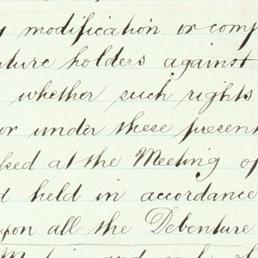 modification or comp
ture holders against
whether such rights
or under these present
sed at the Meeting of
held in accordance
upon all the Debenture